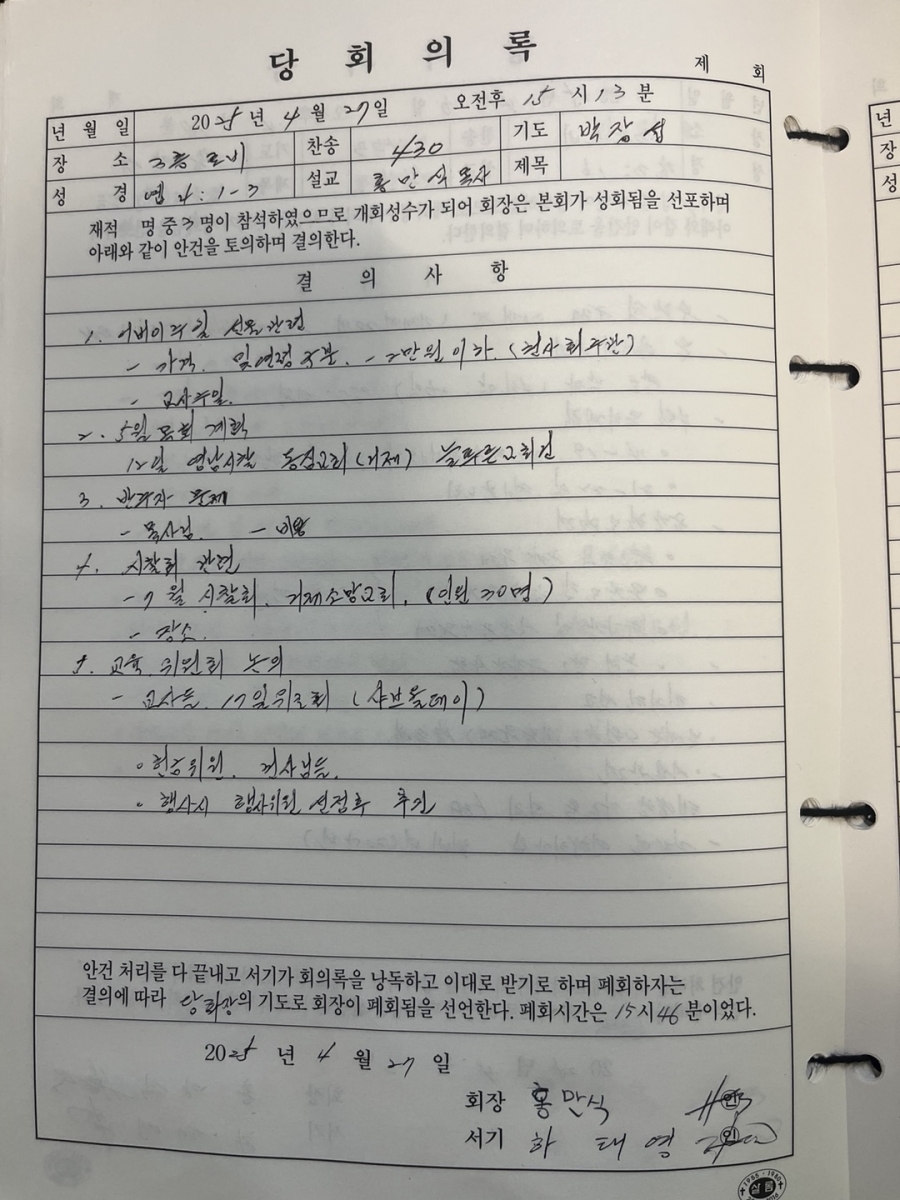 당 회 의 록
제 회
년 월 일 2025년 4월 27일 오전후 15시 13분
장 소 3층 로비 찬송 430 기도 박장섭
성 경 엡 4:1-3 설교 홍만식 목사 제목
재적 명 중 3명이 참석하였으므로 개회성수가 되어 회장은 본회가 성회됨을 선포하며
아래와 같이 안건을 토의하며 결의한다.
결 의 사 항
1. 어버이주일 선물 관련
- 가격. 및 연령 구분. - 2만원 이하. (권사회 주관)
- 교사주일.
2. 5월 목회 계획
12일 영남시찰 동심교회 (거제) 늘푸른교회건
3. 반주자 문제
- 목사님. - 비용
4. 시찰회 관련
- 7월 시찰회. 거제소망교회. (인원 30명)
- 장소.
5. 교육 위원회 논의
- 교사들. 17일 위로회 (샤브올데이)
◦ 헌금위원. 권사님들.
◦ 행사시 행사위원 선정후 추진
안건 처리를 다 끝내고 서기가 회의록을 낭독하고 이대로 받기로 하며 폐회하자는
결의에 따라 당회장의 기도로 회장이 폐회됨을 선언한다. 폐회시간은 15시 46분이었다.
2025년 4월 27일
회장 홍만식 인
서기 하태영 인